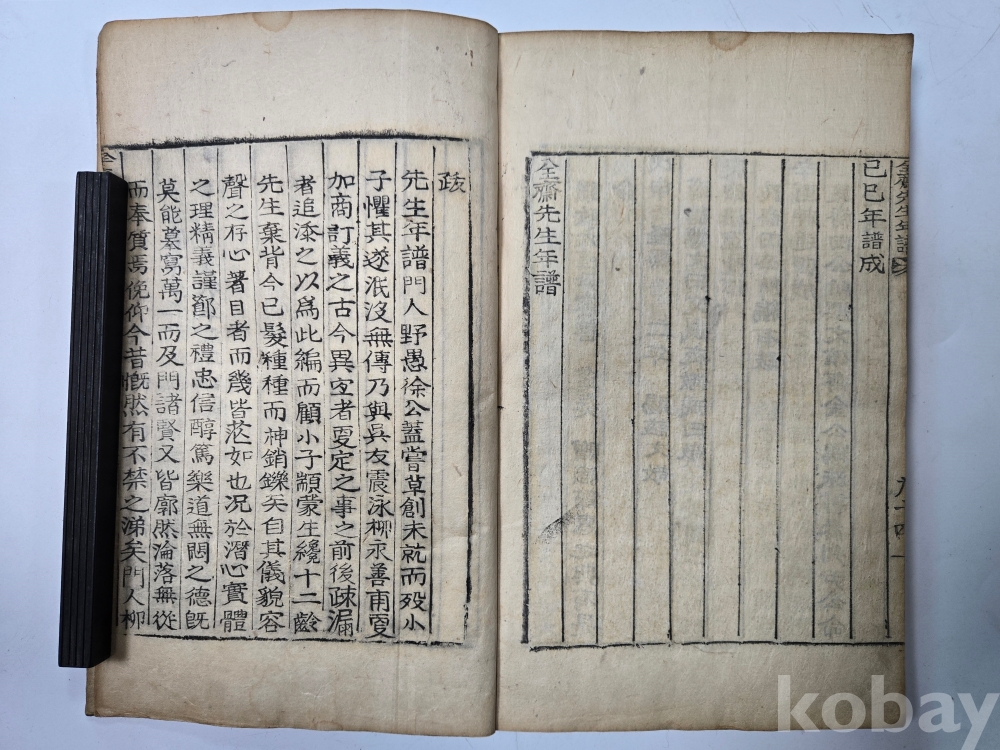 己巳年譜成
全齋先生年譜
跋
先生年譜門人野愚徐公蓋嘗草創未就而歿小
子懼其遂泯沒無傳乃與吳友震泳柳永善甫更
加商訂義之古今異宜者更定之事之前後疎漏
者追添之以爲此編而顧小子顓蒙生纔十二齡
先生棄背今已髮種種而神銷鑠矣自其儀貌容
聲之存心著目者而幾皆茫如也況於潛心實體
之理精義謹鄭之禮忠信醇篤樂道無悶之德旣
莫能摹寫萬一而及門諸賢又皆廓然淪落無從
而奉質焉俛仰今昔慨然有不禁之涕矣門人柳
kobay